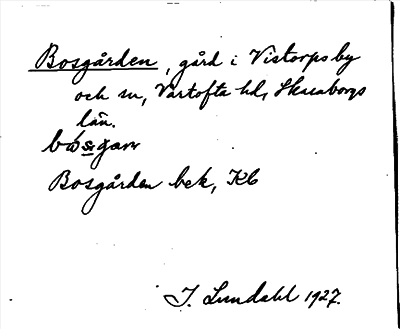 Bosgården, gård i Vistorps by
och sn, Vartofta hd, Skaraborgs
län.
Bosgården bek, Kb
I. Lundahl 1927.